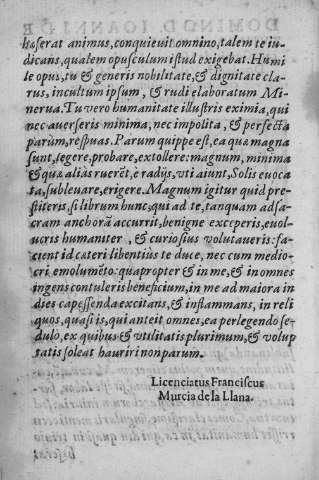 haserat animus, conquieuit omnino, talem te iu-
dicans, qualem opusculum istud exigebat. Humi
le opus, tu & generis nobilitate, & dignitate cla-
rus, incultum ipsum, & rudi elaboratum Mi-
nerua. Tu vero humanitate illustris eximia, qui
nec auerseris minima, nec impolita, & perfecta
parùm, respuas. Parum quippe est, ea quæ magna
sunt, tegere, probare, extollere: magnum, minima
& quæ aliàs ruerēt, e radijs, vti aiunt, Solis euoca
ta, subleuare, erigere. Magnum igitur quid præ-
stiteris, si librum hunc, qui ad te, tanquam ad sa-
cram anchorā accurrit, benigne exceperis, euol-
ueris humaniter, & curiosius volutaueris: fa-
cient id cæteri libentiùs te duce, nec cum medio-
cri emolumēto: quapropter & in me, & in omnes
ingens contuleris beneficium, in me ad maiora in
dies capessenda excitans, & inflammans, in reli
quos, quasi is, qui anteit omnes, ea perlegendo se-
dulo, ex quibus & vtilitatis plurimum, & volup
tatis soleat hauriri non parum.
Licenciatus Franciscus
Murcia de la Llana.